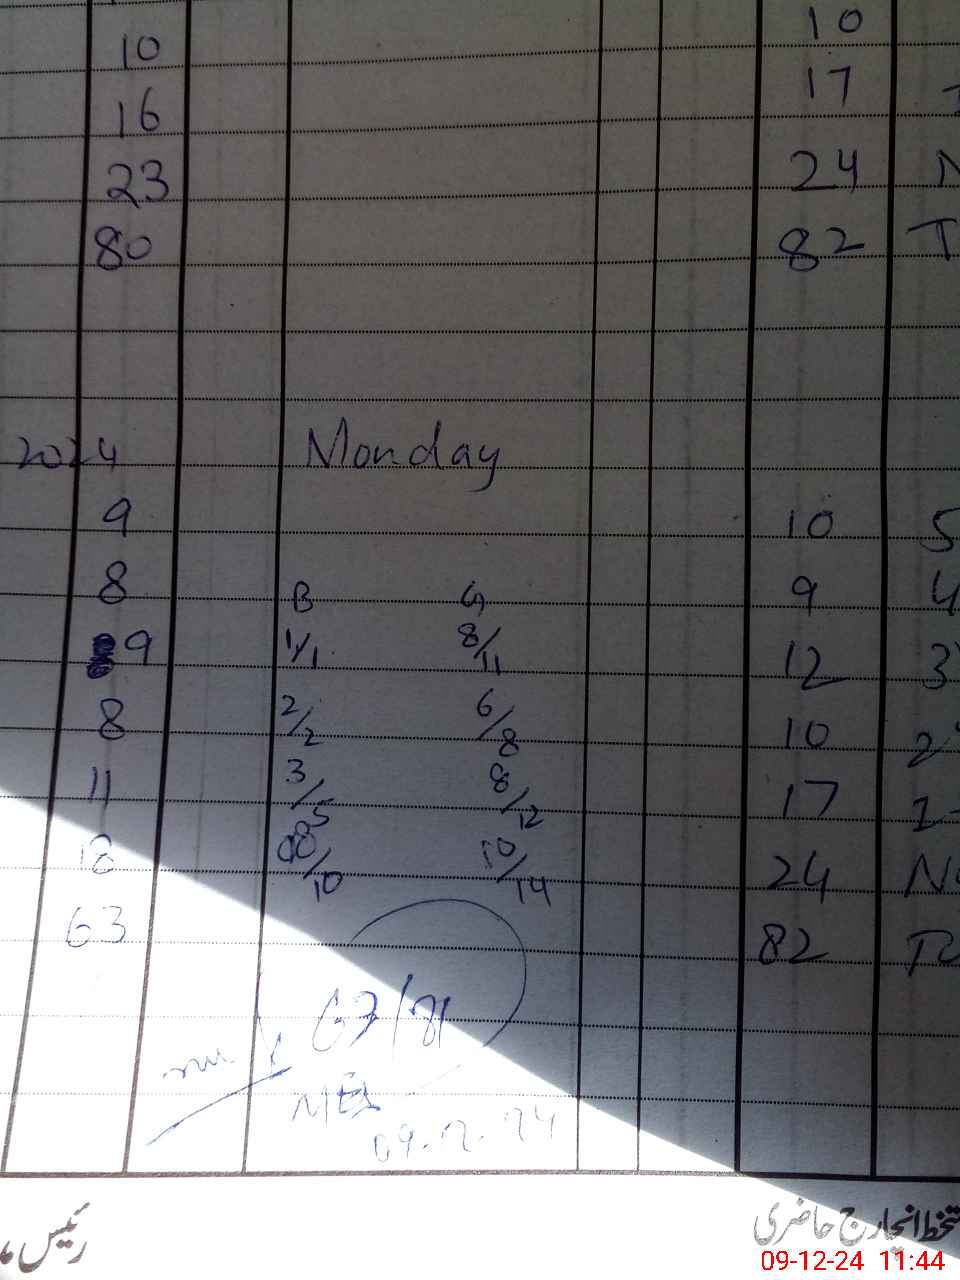 10 10
16 17
23 24
80 82 T
2024 Monday
9 10 5
8 B G 9 4
9 1/1 8/11 12 3
8 2/2 6/8 10 2
11 3/5 8/12 17
18 8/10 10/14 24 N
63 82
63/
09-12-24
تخط انچارج حاضری
رئیس
09-12-24 11:44